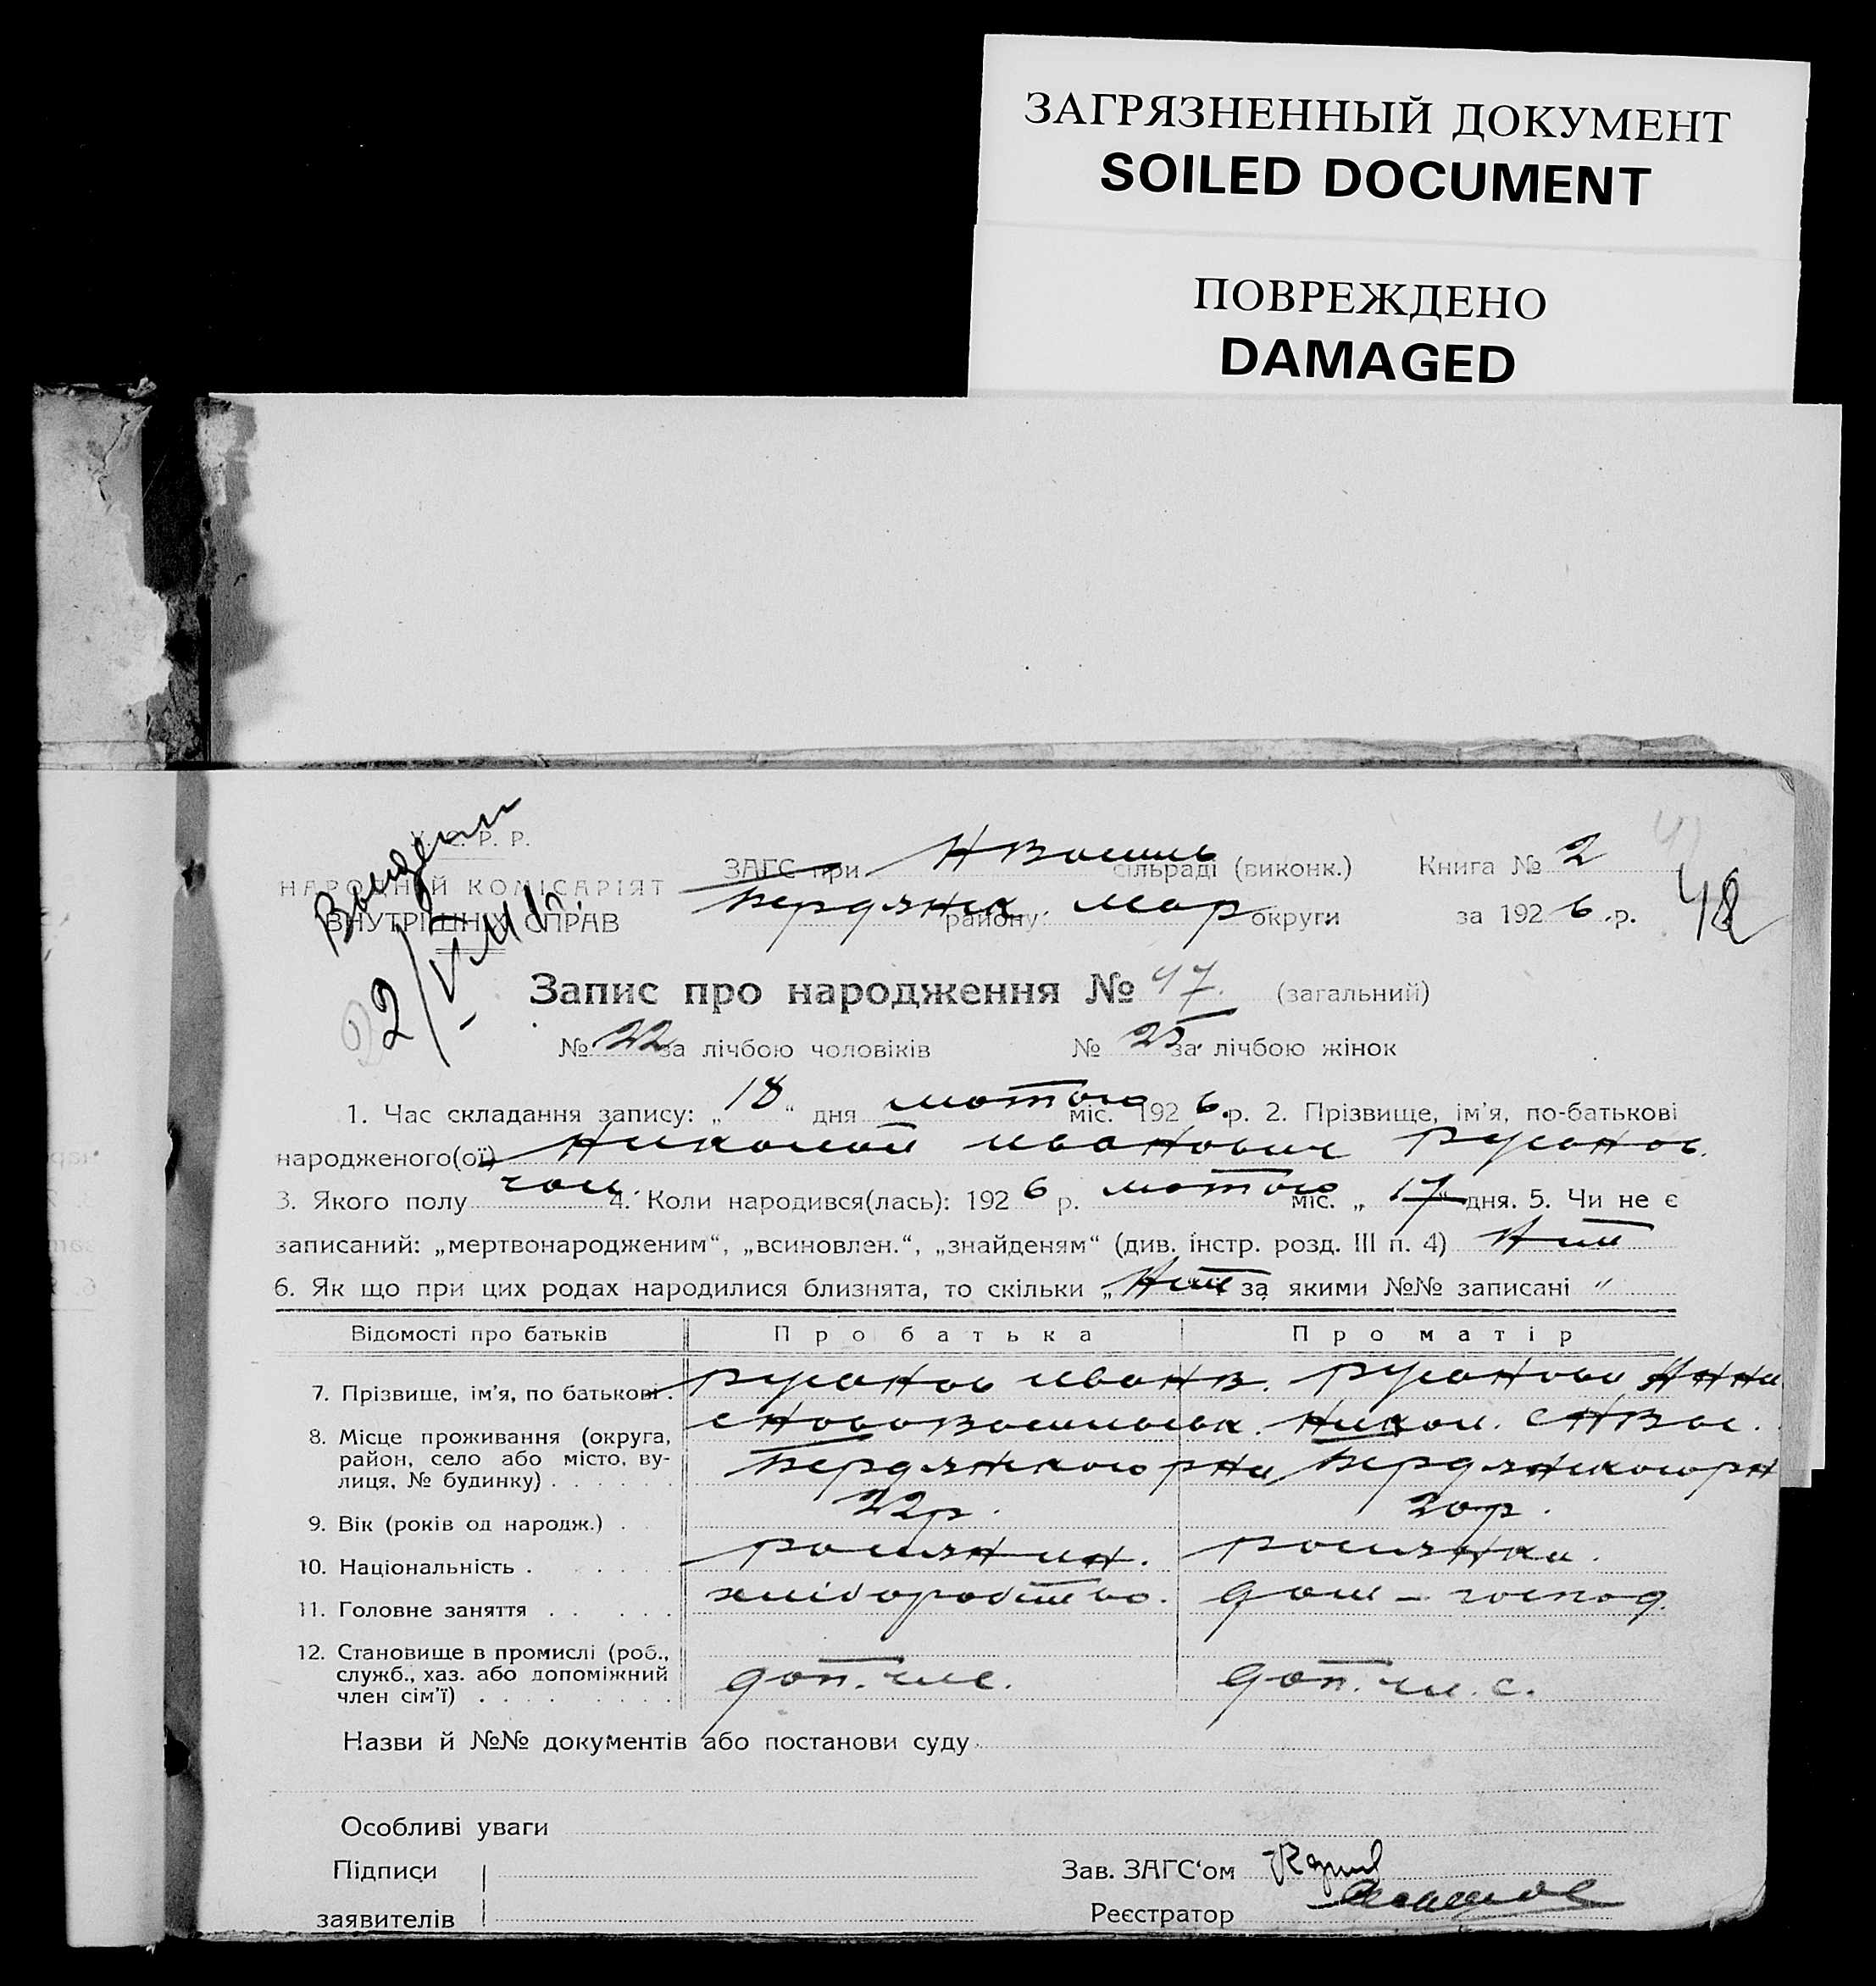 ЗАГРЯЗНЕННЫЙ ДОКУМЕНТ
SOILED DOCUMENT
ПОВРЕЖДЕНО
DAMAGED
У. С. Р. Р.
НАРОДНІЙ КОМІСАРІЯТ
ВНУТРІШНІХ СПРАВ
ЗАГС при НВасиль сільраді (виконк.) Книга № 2
Бердянск району Мар округи за 1926 .р.
48
Запис про народження № 47. (загальний)
№ 22 за лічбою чоловіків № 25 за лічбою жінок
1. Час складання запису: „18“ дня лютого міс. 1926.р. 2. Прізвище, ім’я, по-батькові
народженого(ої) Николай Иванович Русанов.
3. Якого полу чол. 4. Коли народився(лась): 1926 р. лютого міс. „17“ дня. 5. Чи не є
записаний: „мертвонародженим“, „всиновлен.“, „знайденям“ (див. інстр. розд. III п. 4) Ні
6. Як що при цих родах народилися близнята, то скільки „ за якими №№ записані "
Відомості про батьків Про батька Про матір
7. Прізвище, ім’я, по батькові . Русанов Иван В. Русанова Анна
8. Місце проживання (округа, с Нововасильевк. Никол. с НВас.
район, село або місто, ву- Бердянского рна Бердянского рн
лиця, № будинку) . . . . . .
9. Вік (років од народж.) . 22р. 20р.
10. Національність . . . . . росиянин. росиянка.
11. Головне заняття . . . . . хліборобство. дом – господ.
12. Становище в промислі (роб.,
служб., хаз. або допоміжний доп. чл с. доп. чл. с.
член сім’ї) . . . . . . . .
Назви й №№ документів або постанови суду
Особливі уваги
Підписи Зав. ЗАГС‘ом
заявителів Реєстратор